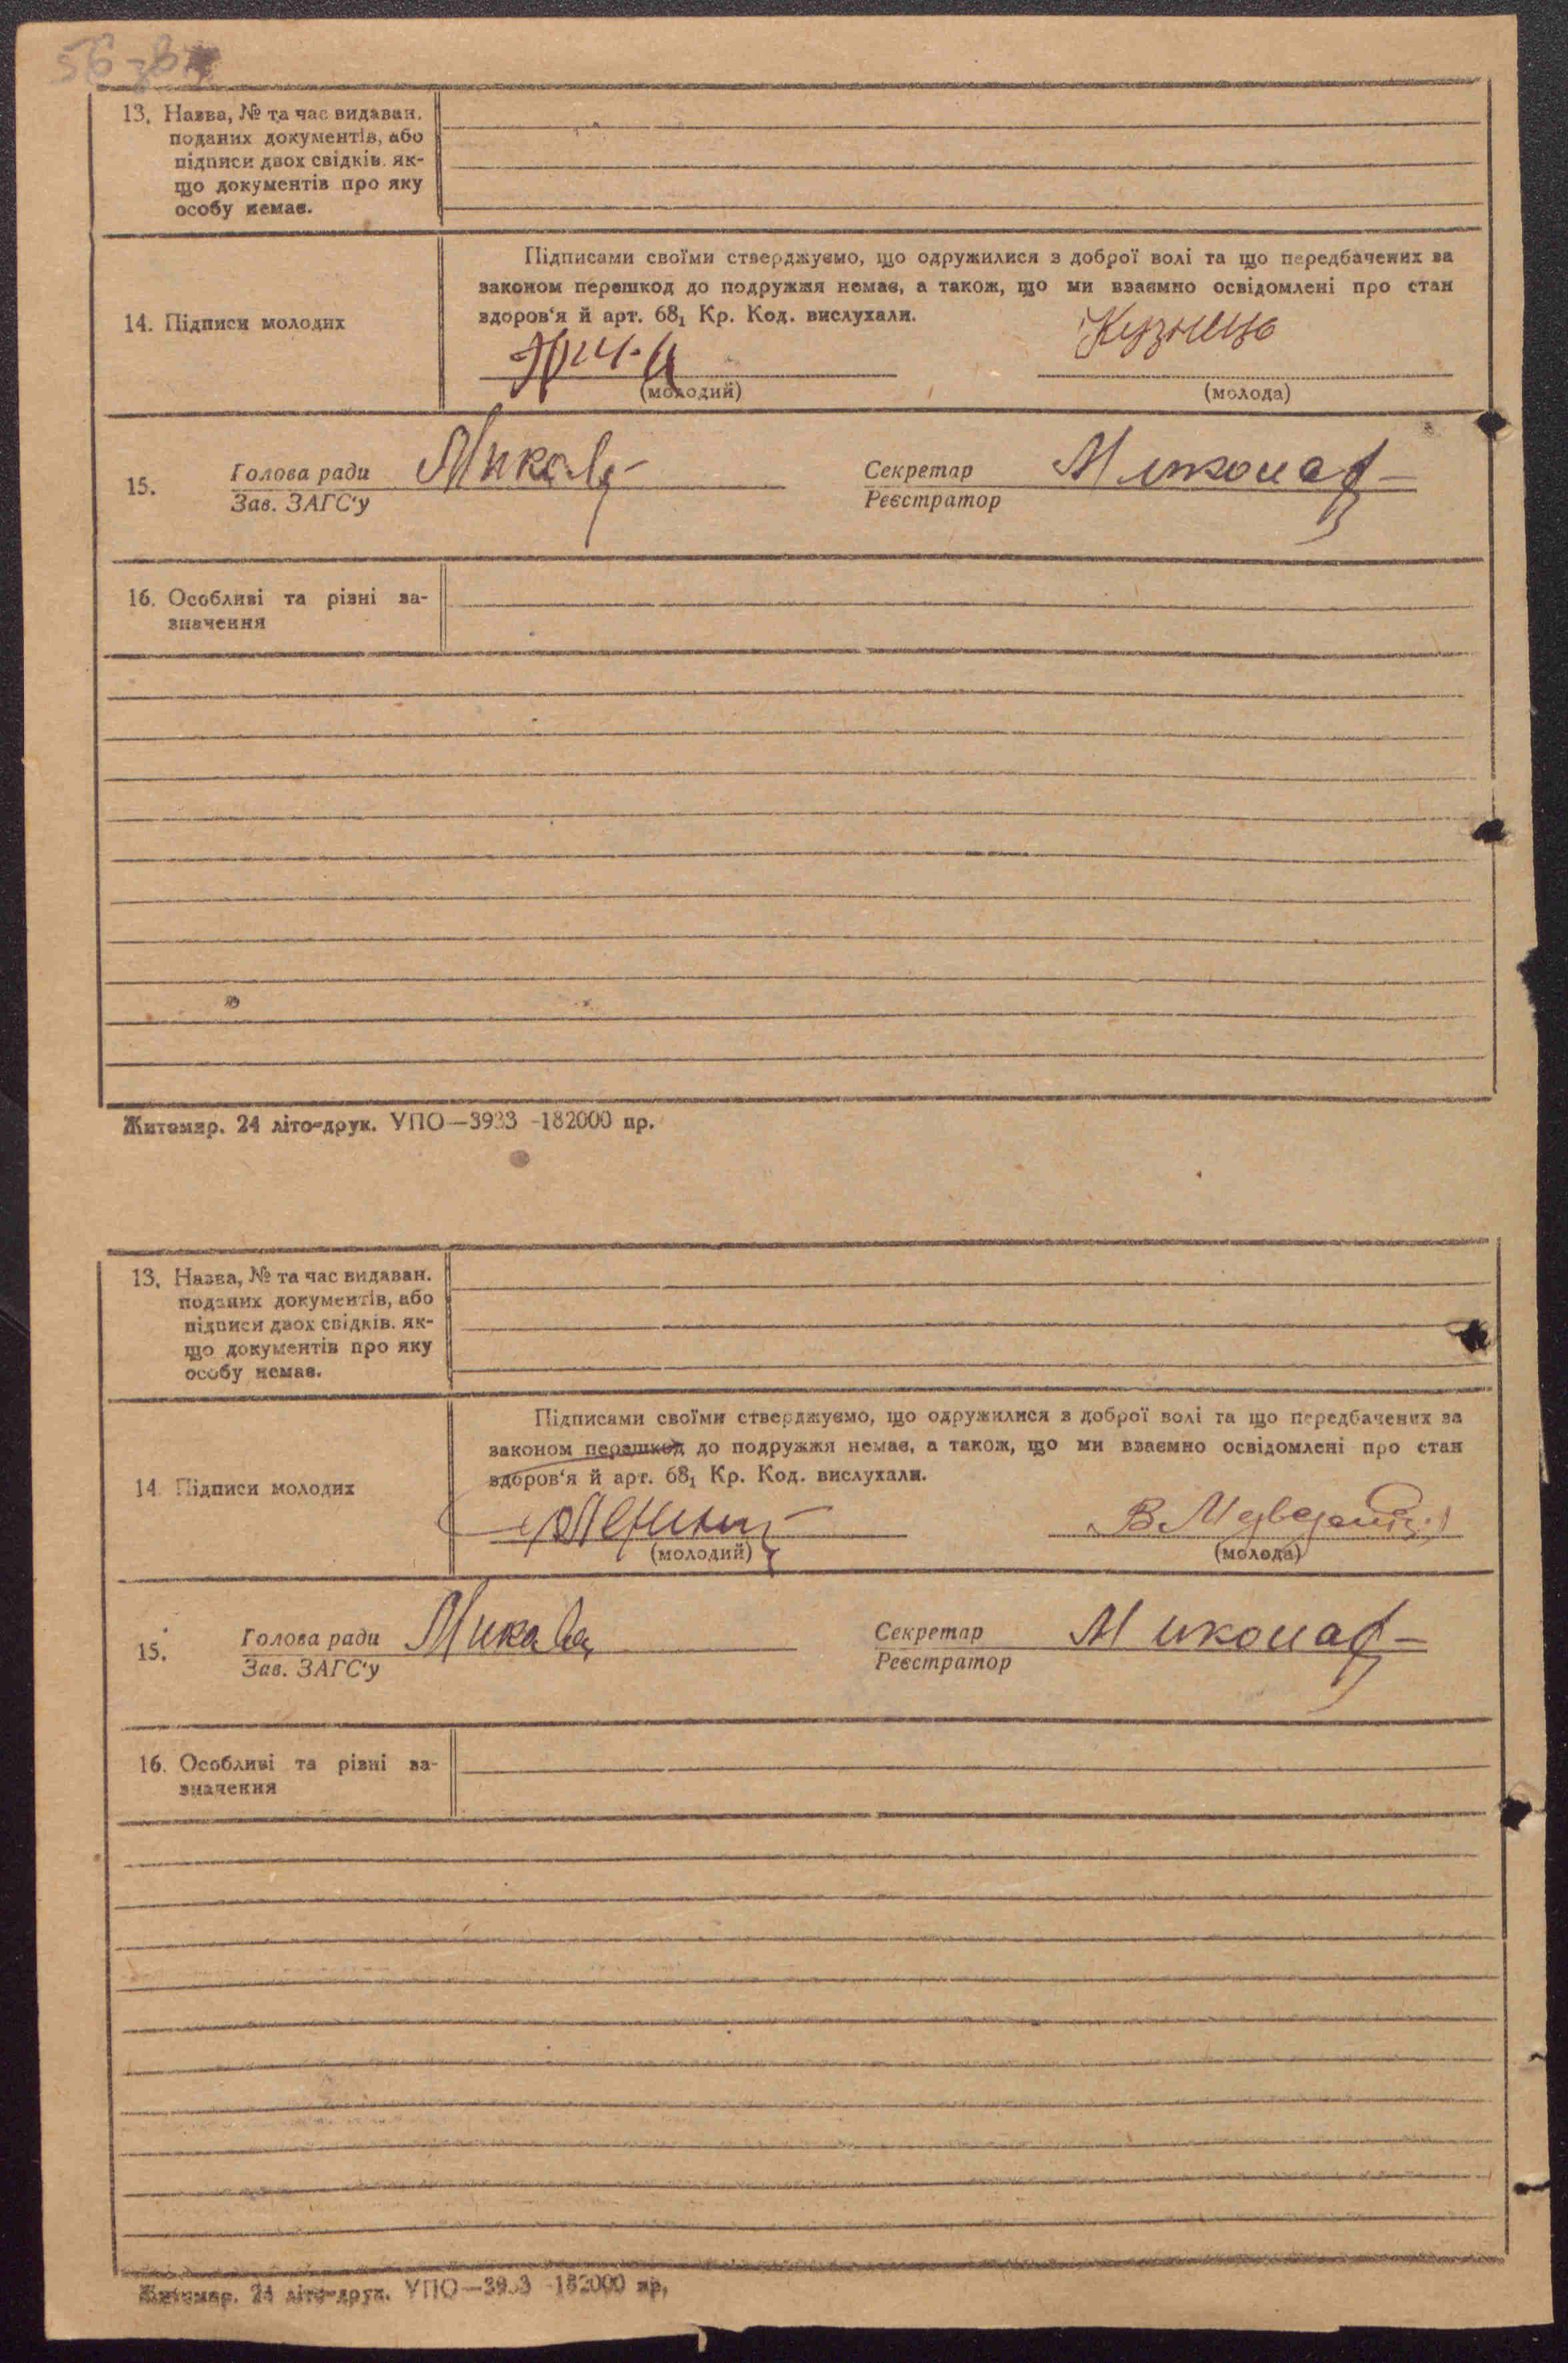 13. Назва, № та час видаван.
поданих документів, або
підписи двох свідків. як-
що документів про яку
особу немає.
Підписами своїми стверджуємо, що одружилися з доброї волі та що передбачених за
законом перешкод до подружжя немає, а також, що ми взаємно освідомлені про стан
здоров'я й арт. 68₁ Кр. Код. вислухали.
14. Підписи молодих
(молодий) (молода)
15. Голова ради Секретар
Зав. ЗАГС'у Реєстратор
16. Особливі та різні за-
значення
Житомир. 24 літо-друк. УПО—3933 -182000 пр.
13. Назва, № та час видаван.
поданих документів, або
підписи двох свідків. як-
що документів про яку
особу немає.
Підписами своїми стверджуємо, що одружилися з доброї волі та що передбачених за
законом перешкод до подружжя немає, а також, що ми взаємно освідомлені про стан
здоров'я й арт. 68₁ Кр. Код. вислухали.
14. Підписи молодих
(молодий) (молода)
15. Голова ради Секретар
Зав. ЗАГС'у Реєстратор
16. Особливі та різні за-
значення
Житомир. 24 літо-друк. УПО—3933 -182000 пр.